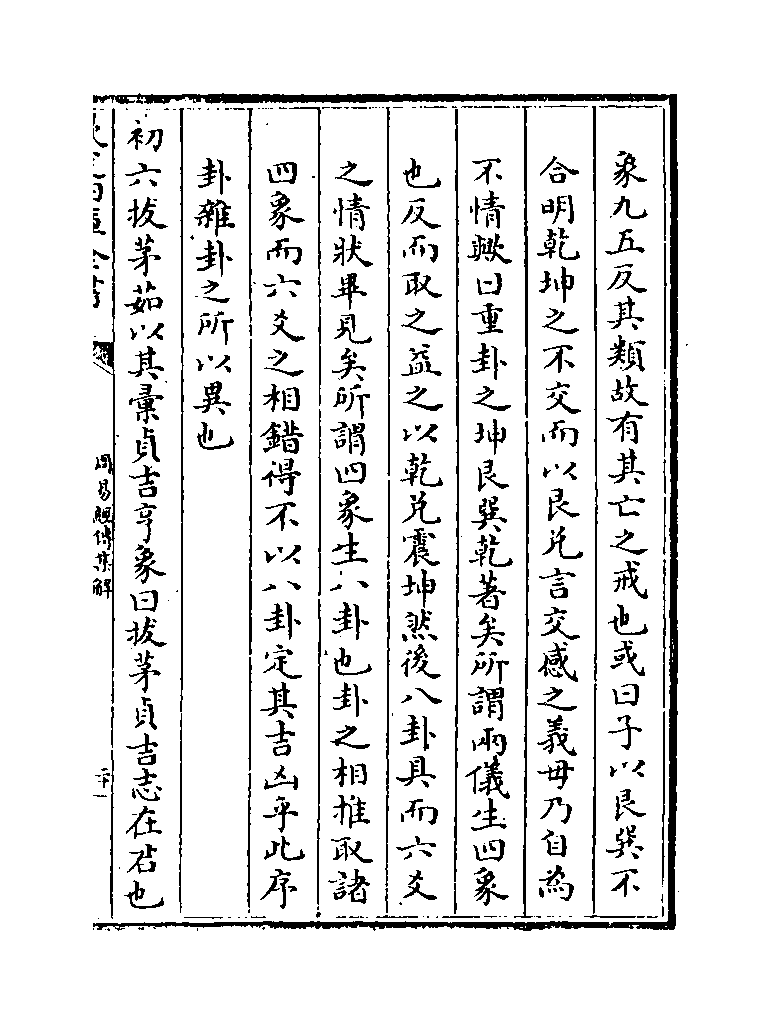 象九五反其類故有其亡之戒也或曰子以艮巽不
合明乾坤之不交而以艮兑言交感之義毋乃自為
不情歟曰重卦之坤艮巽乾著矣所謂兩儀生四象
也反而取之益之以乾兑震坤然後八卦具而六爻
之情狀畢見矣所謂四象生八卦也卦之相推取諸
四象而六爻之相錯得不以八卦定其吉凶乎此序
卦雜卦之所以異也
初六拔茅茹以其彚貞吉亨象曰拔茅貞吉志在君也
周易經傳集解